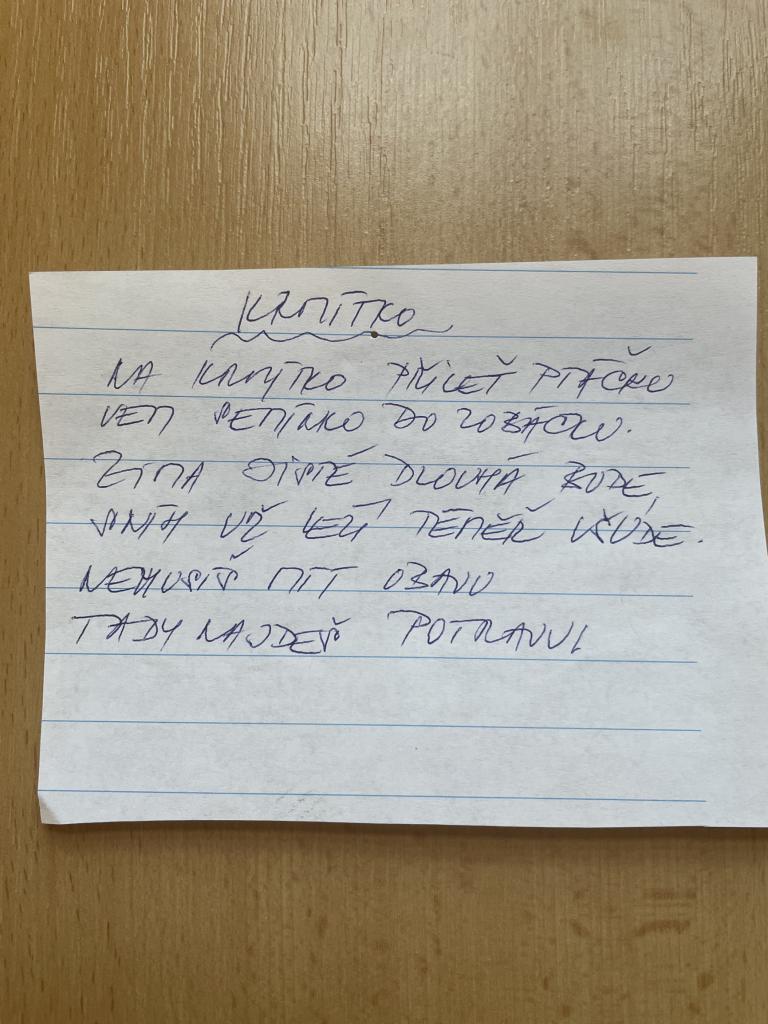 KRMÍTKO
NA KRMÝTKO PŘILEŤ PTÁČKU
VEM SEMÍNKO DO ZOBÁČKU.
ZIMA JISTĚ DLOUHÁ BUDE,
SNÍH UŽ LEŽÍ TÉMĚŘ VŠUDE.
NEMUSÍŠ MÍT OBAVU
TADY NAJDEŠ POTRAVU